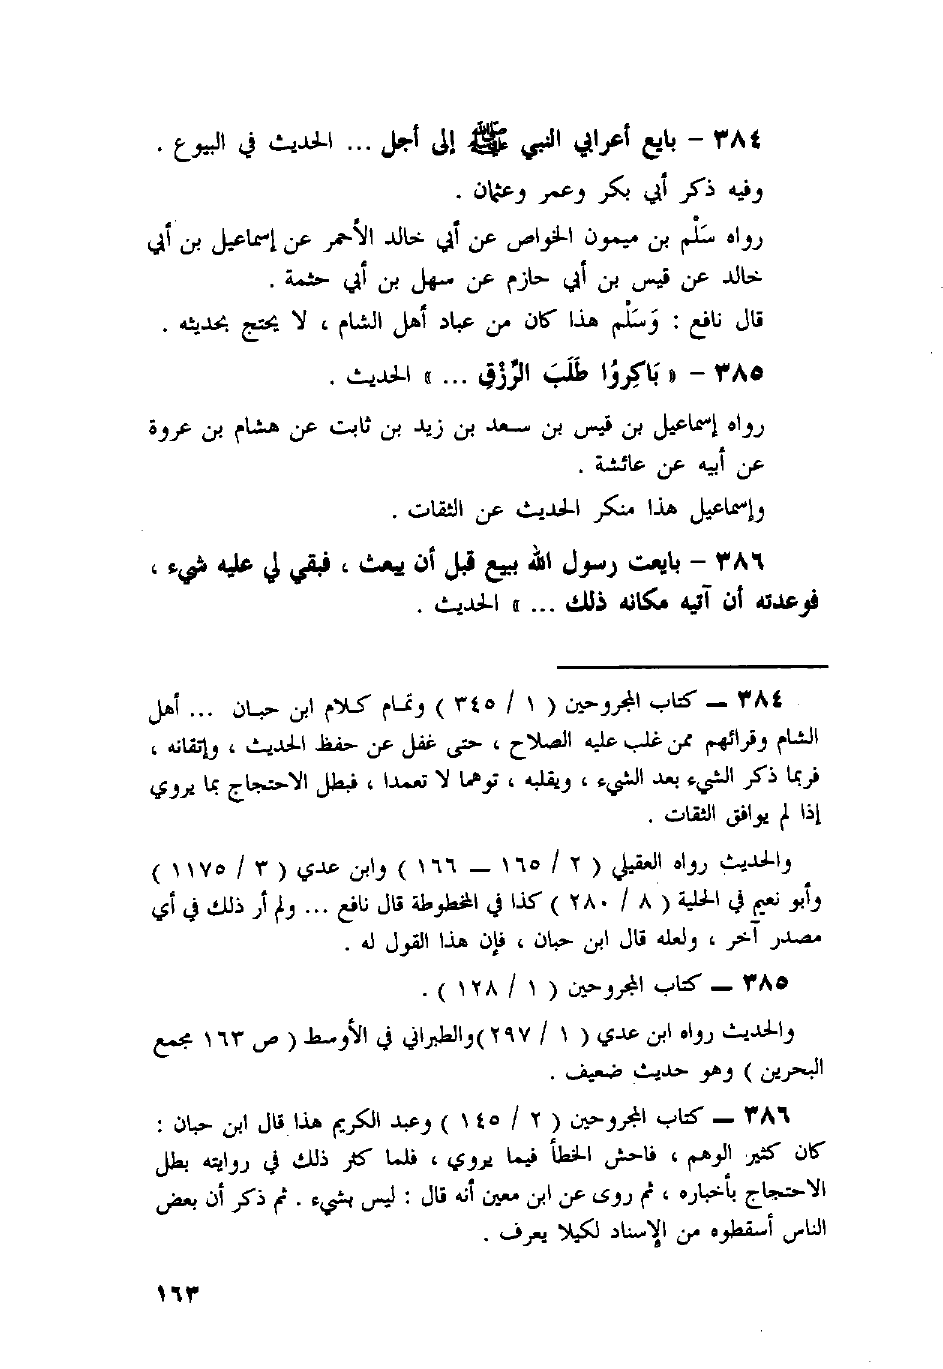 ٣٨٤ - بايع أعرابي النبي ﷺ إلى أجل ... الحديث في البيوع .
وفيه ذكر أبي بكر وعمر وعثمان .
رواه سَلْم بن ميمون الخواص عن أبي خالد الأحمر عن إسماعيل بن أبي
خالد عن قيس بن أبي حازم عن سهل بن أبي حثمة .
قال نافع : وَسَلْم هذا كان من عباد أهل الشام ، لا يحتج بحديثه .
٣٨٥ - « بَاكِروُا طَلَبَ الرِّزْقِ ... » الحديث .
رواه إسماعيل بن قيس بن سعد بن زيد بن ثابت عن هشام بن عروة
عن أبيه عن عائشة .
وإسماعيل هذا منكر الحديث عن الثقات .
٣٨٦ - بايعت رسول الله ببيع قبل أن يبعث ، فبقي لي عليه شيء ،
فوعدته أن آتيه مكانه ذلك ... » الحديث .
٣٨٤ — كتاب المجروحين ( ١ / ٣٤٥ ) وتمام كلام ابن حبان ... أهل
الشام وقرائهم ممن غلب عليه الصلاح ، حتى غفل عن حفظ الحديث ، وإتقانه ،
فربما ذكر الشيء بعد الشيء ، ويقلبه ، توهما لا تعمدا ، فبطل الاحتجاج بما يروي
إذا لم يوافق الثقات .
والحديث رواه العقيلي ( ٢ / ١٦٥ — ١٦٦ ) وابن عدي ( ٣ / ١١٧٥ )
وأبو نعيم في الحلية ( ٨ / ٢٨٠ ) كذا في المخطوطة قال نافع ... ولم أر ذلك في أي
مصدر آخر ، ولعله قال ابن حبان ، فإن هذا القول له .
٣٨٥ — كتاب المجروحين ( ١ / ١٢٨ ) .
والحديث رواه ابن عدي ( ١ / ٢٩٧ )والطبراني في الأوسط ( ص ١٦٣ مجمع
البحرين ) وهو حديث ضعيف .
٣٨٦ — كتاب المجروحين ( ٢ / ١٤٥ ) وعبد الكريم هذا قال ابن حبان :
كان كثير الوهم ، فاحش الخطأ فيما يروي ، فلما كثر ذلك في روايته بطل
الاحتجاج بأخباره ، ثم روى عن ابن معين أنه قال : ليس بشيء . ثم ذكر أن بعض
الناس أسقطوه من الإسناد لكيلا يعرف .
١٦٣